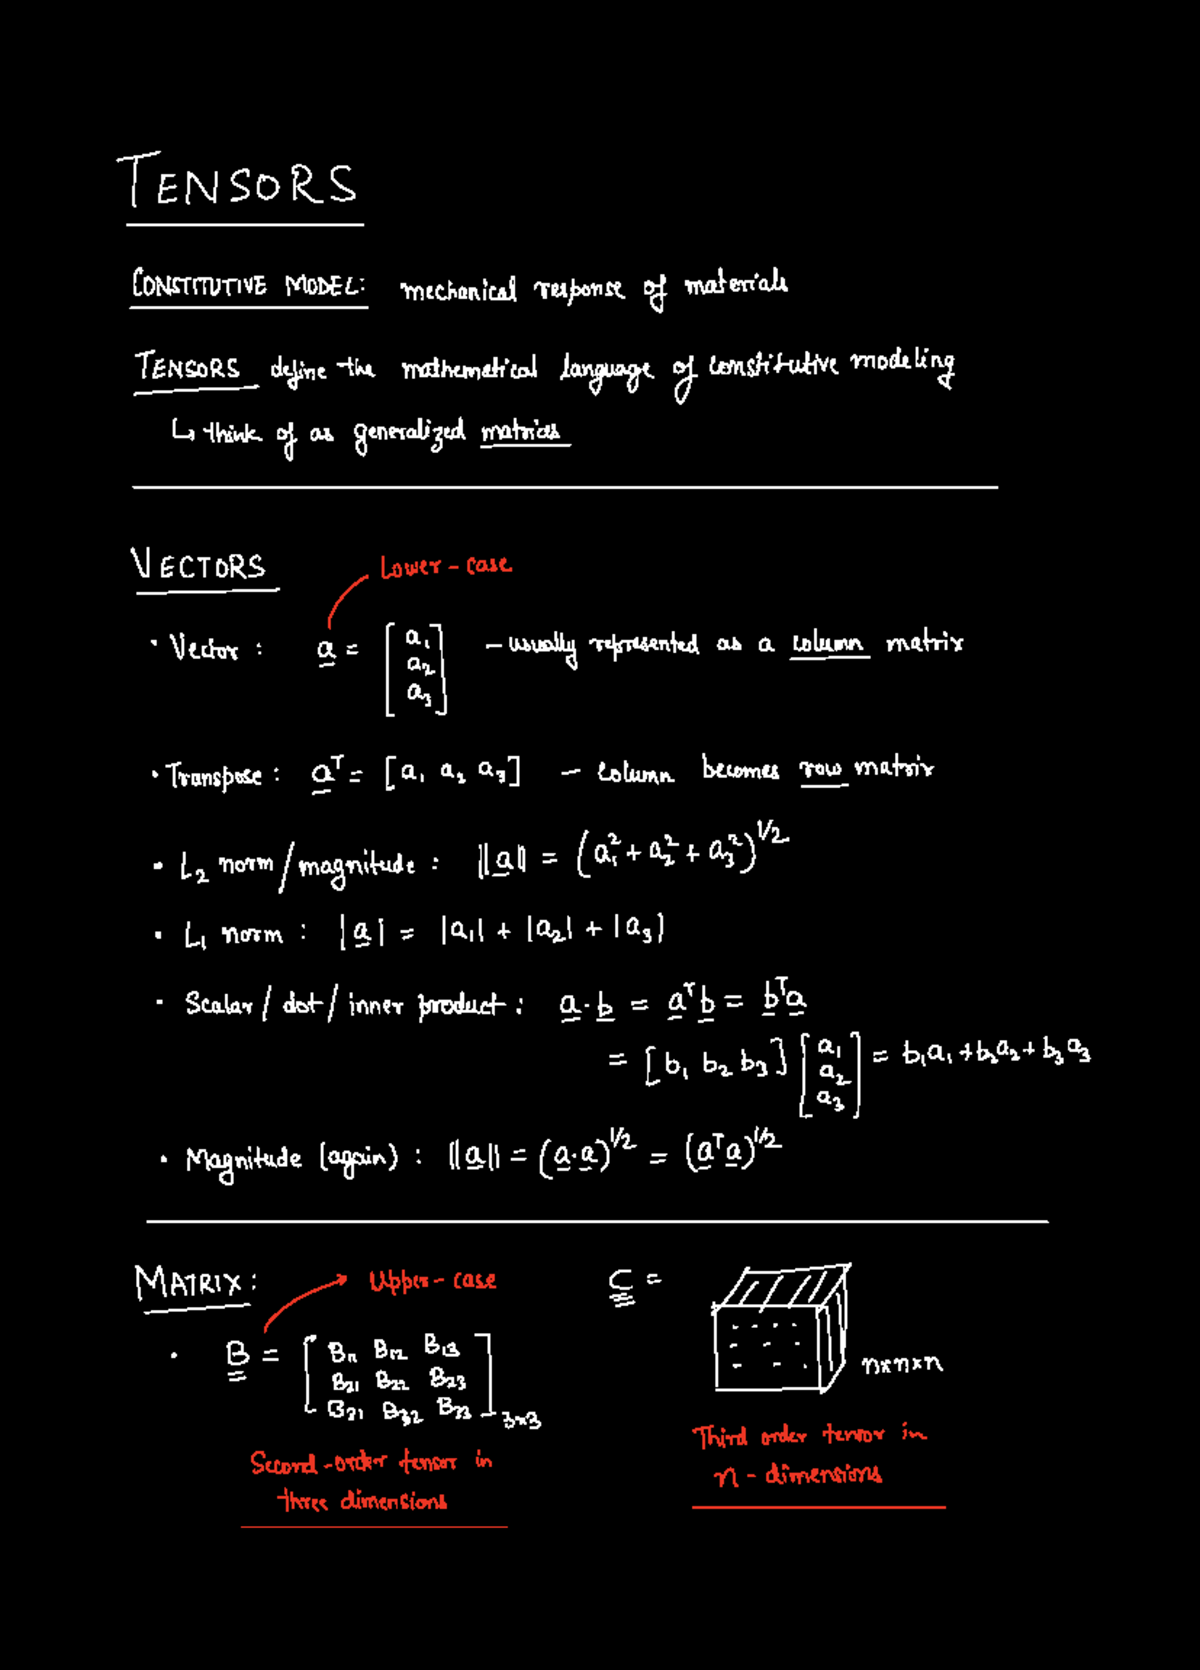 TENSORS
CONSTITUTIVE MODEL: mechanical response of materials
TENSORS define the mathematical language of constitutive modeling
↳ think of as generalized matrices
VECTORS
Lower-case
· Vector : a = [a₁ a₂ a₃] – usually represented as a column matrix
· Transpose : aᵀ = [a₁ a₂ a₃] – column becomes row matrix
· L₂ norm/magnitude : ||a|| = (a₁² + a₂² + a₃²)^1/2
· L₁ norm : |a| = |a₁| + |a₂| + |a₃|
· Scalar/dot/inner product : a · b = aᵀb = bᵀa
= [b₁ b₂ b₃] [a₁ a₂ a₃] = b₁a₁ + b₂a₂ + b₃a₃
· Magnitude (again) : ||a|| = (a·a)^1/2 = (aᵀa)^1/2
MATRIX :
Upper-case
· B = [B₁₁ B₁₂ B₁₃
B₂₁ B₂₂ B₂₃
B₃₁ B₃₂ B₃₃] 3×3
Second-order tensor in
three dimensions
C =
n×n×n
Third order tensor in
n - dimensions